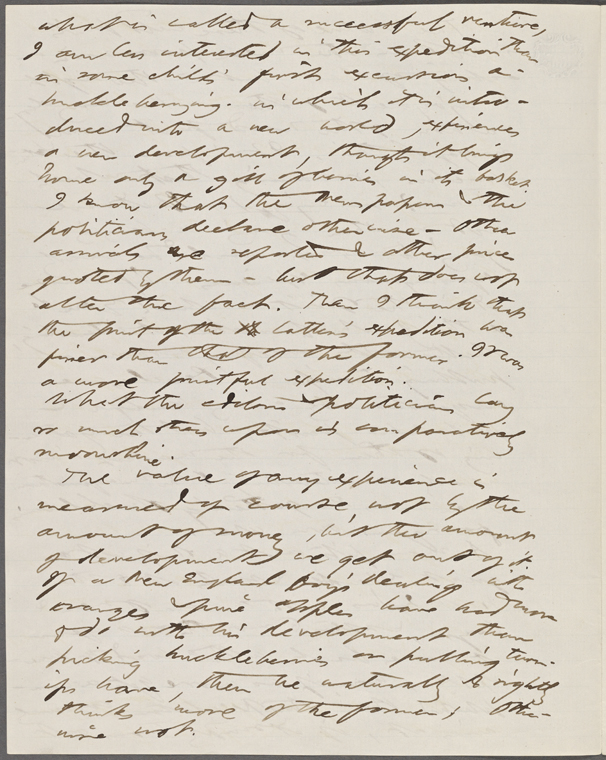 what is called a successful venture,
I am less interested in this expedition than
in some child's first excursion a-
huckleberrying. in which it is intro-
duced into a new world, experiences
a new development, though it brings
home only a gill of berries in its basket.
I know that the newspapers & the
politicians declare otherwise - other
arrivals are reported & other prices
quoted by them - but that does not
alter the fact. Then I think that
the fruit of the latter's expedition was
finer than that of the former. It was
a more fruitful expedition.
What the editors & politicians lay
so much stress upon is comparatively
moonshine.
The value of any experience is
measured of course, not by the
amount of money, but the amount
of development we get out of it.
If a New England boy's dealings with
oranges & pine apples have had more
to do with his development than
picking huckleberries or pulling turn-
ips have, then he naturally & rightly
thinks more of the former; other-
wise not.